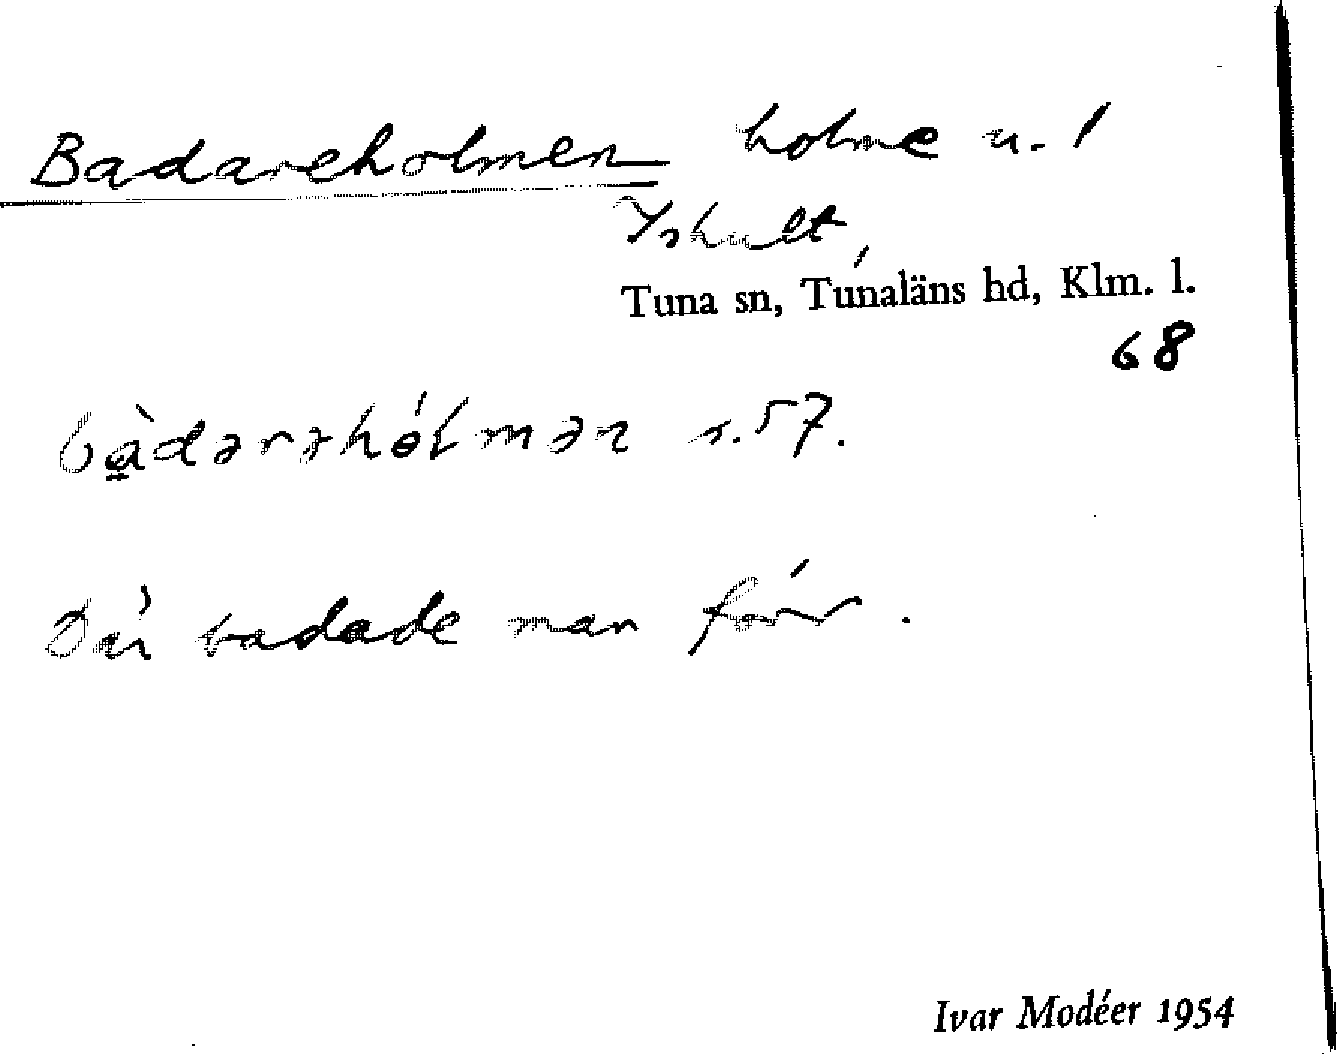 Badareholmen holme u. 1
Yshult,
Tuna sn, Tunaläns hd, Klm. l.
68
bàdərəhólmən s. 57.
Där badade man förr.
Ivar Modéer 1954